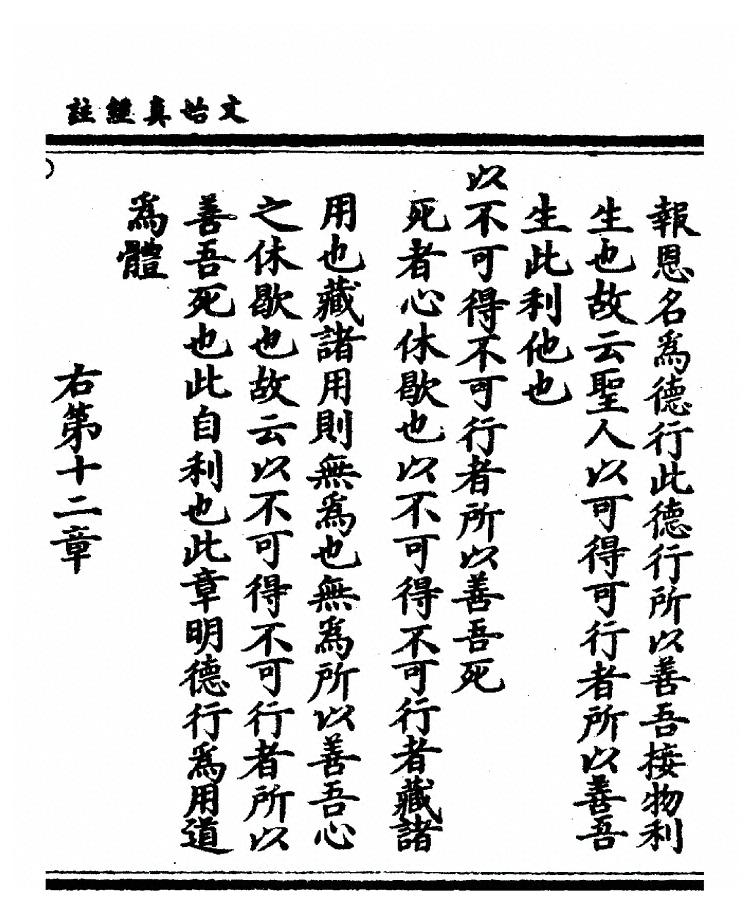 文始真經註
報恩名為德行此德行所以善吾接物利
生也故云聖人以可得可行者所以善吾
生此利他也
以不可得不可行者所以善吾死
死者心休歇也以不可得不可行者藏諸
用也藏諸用則無為也無為所以善吾心
之休歇也故云以不可得不可行者所以
善吾死也此自利也此章明德行為用道
為體
右第十二章